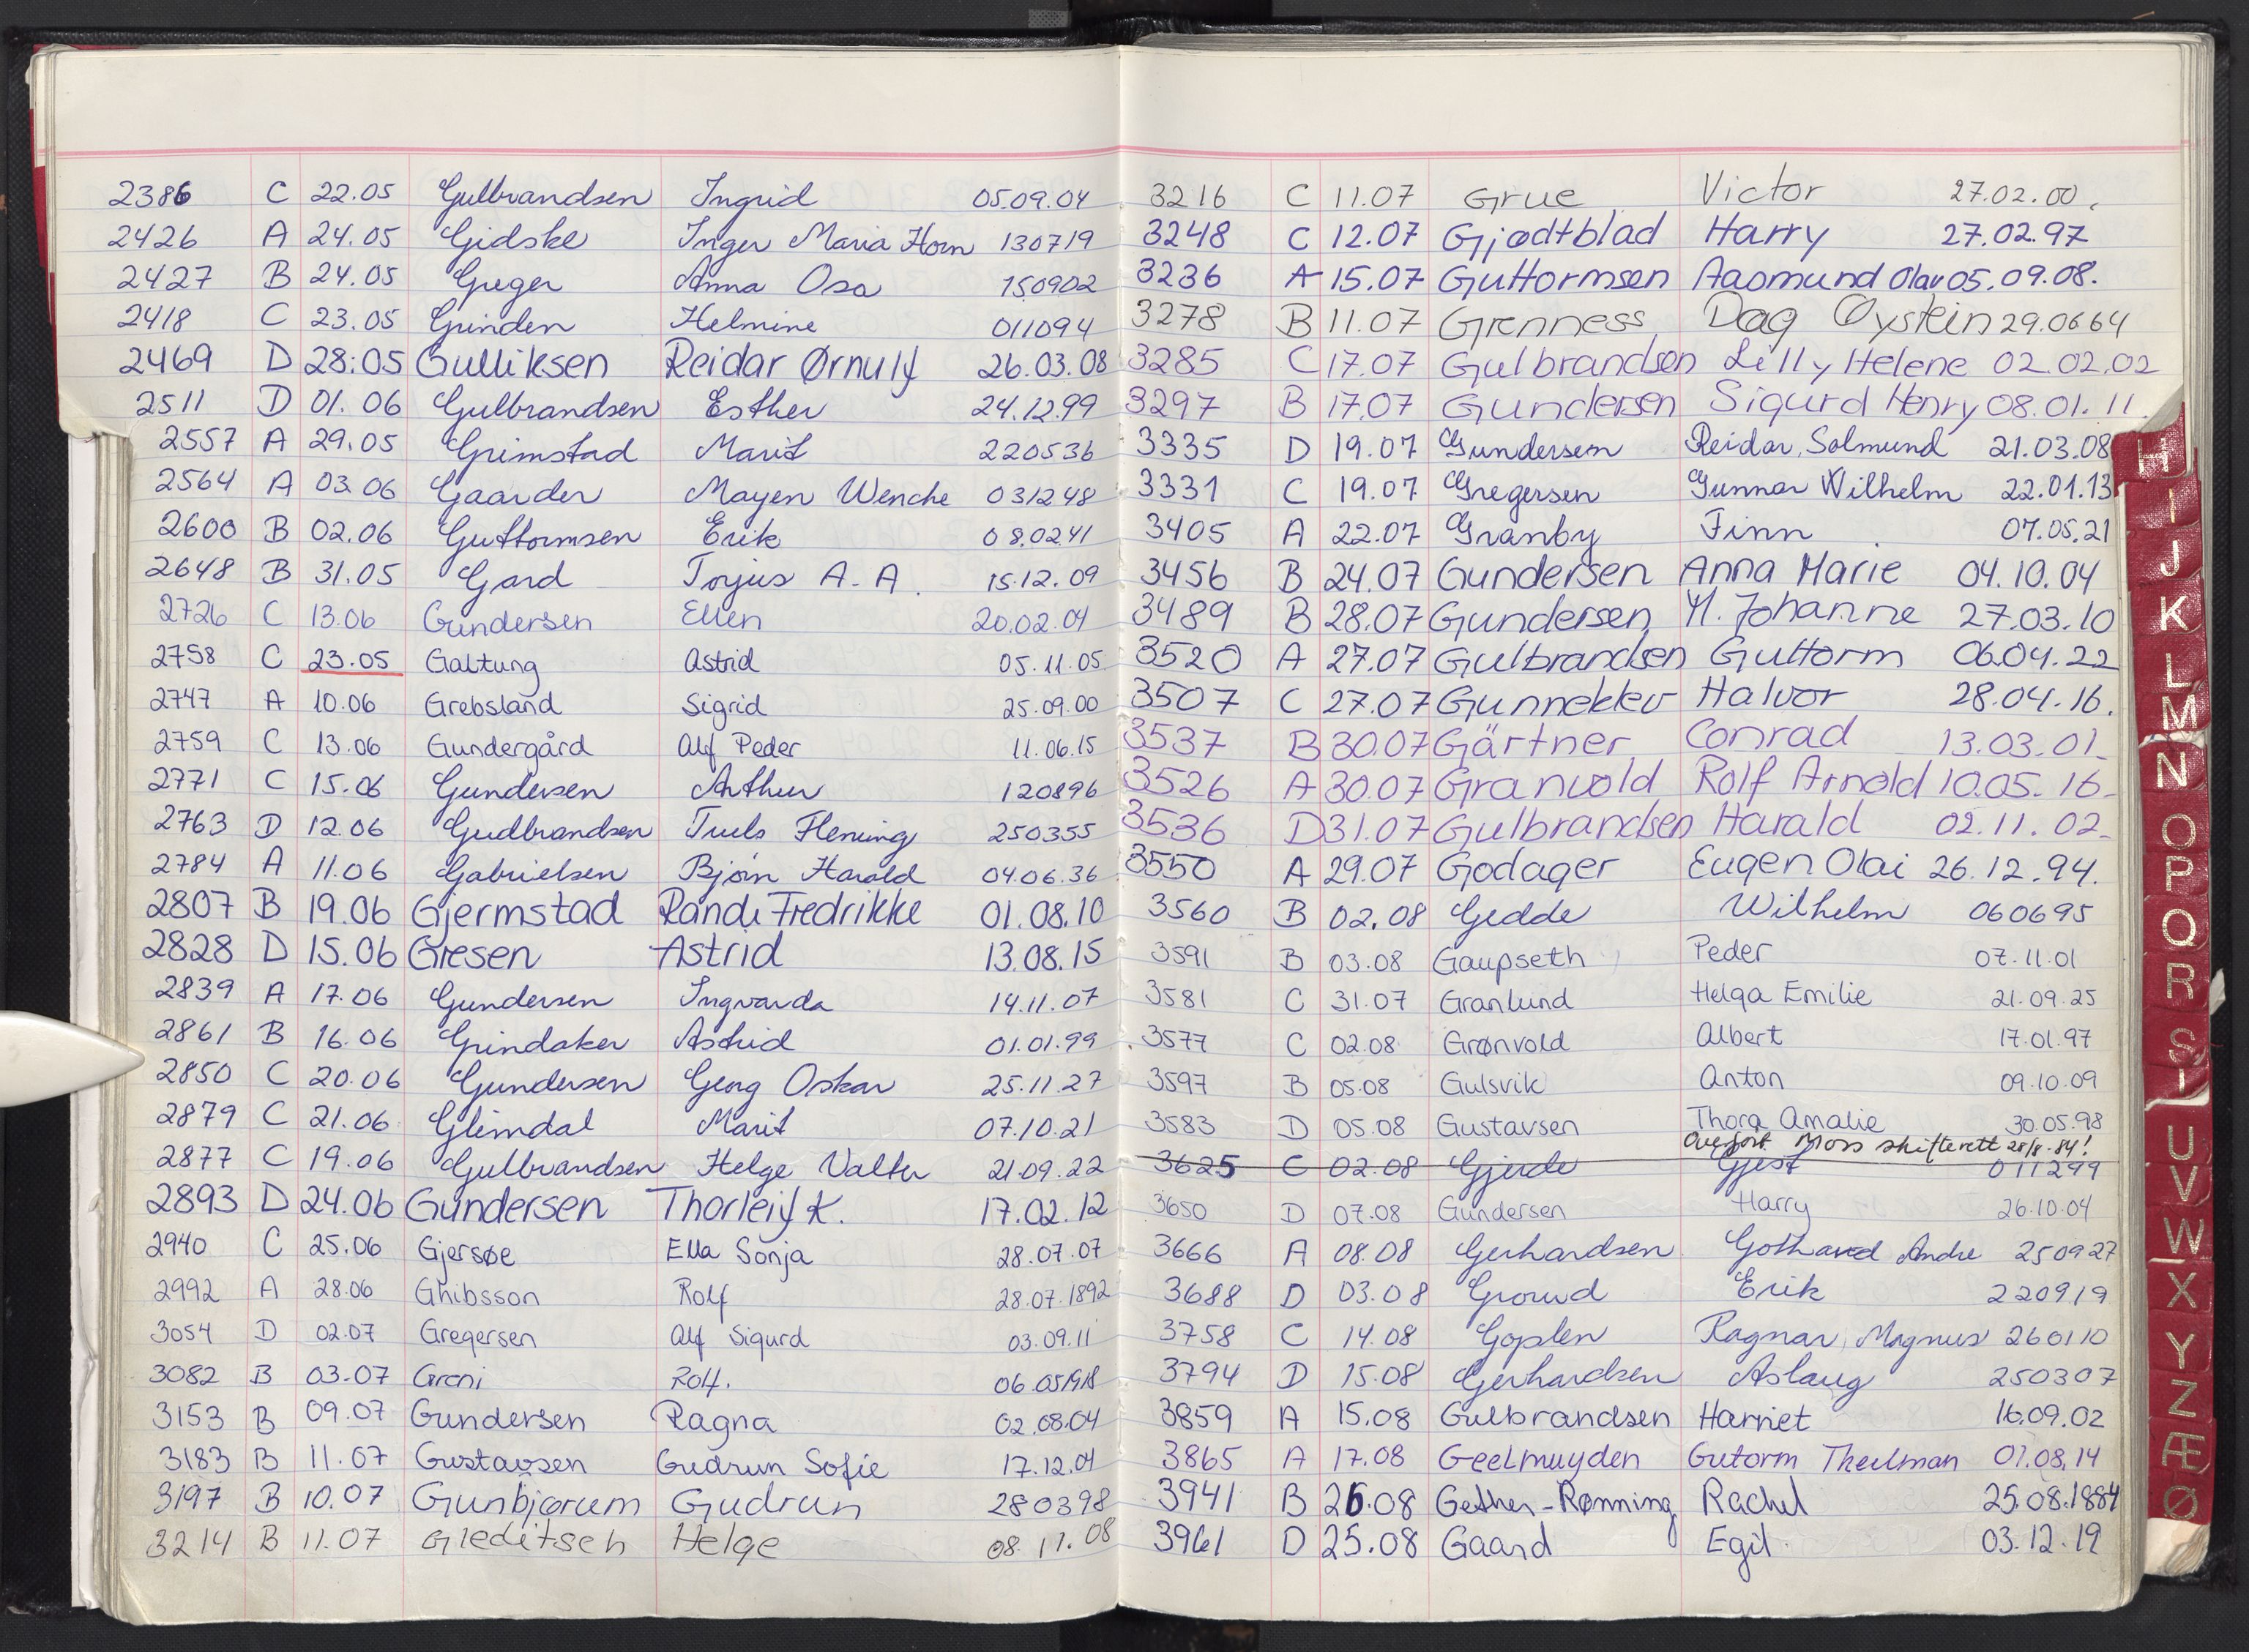 2386 C 22.05 Gulbrandsen Ingrid 05.09.04
2426 A 24.05 Gidske Inger Maria Horn 130719
2427 B 24.05 Greger Anna Osa 150902
2418 C 23.05 Grinden Helmine 011094
2469 D 28:05 Gulliksen Reidar Ørnulf 26.03.08
2511 D 01.06 Gulbrandsen Esther 24.12.99
2557 A 29.05 Grimstad Marit 220536
2564 A 03.06 Gaarder Mayen Wenche 031248
2600 B 02.06 Guttormsen Erik 08.0241
2648 B 31.05 Gard Torjus A.A. 15.12.09
2726 C 13.06 Gundersen Ellen 20.02.04
2758 C 23.05 Galtung Astrid 05.11.05
2747 A 10.06 Grebsland Sigrid 25.09.00
2759 C 13.06 Gundergård Alf Peder 11.06.15
2771 C 15.06 Gundersen Arthur 120896
2763 D 12.06 Gudbrandsen Truls Fleming 250355
2784 A 11.06 Gabrielsen Bjørn Harald 04.06.36
2807 B 19.06 Gjermstad Randi Fredrikke 01.08.10
2828 D 15.06 Gresen Astrid 13.08.15
2839 A 17.06 Gundersen Ingvarda 14.11.07
2861 B 16.06 Grindaker Astrid 01.01.99
2850 C 20.06 Gundersen Georg Oskar 25.11.27
2879 C 21.06 Glimdal Marit 07.10.21
2877 C 19.06 Gulbrandsen Helge Valter 21.09.22
2893 D 24.06 Gundersen Thorleif K. 17.02.12
2940 C 25.06 Gjersøe Ella Sonja 28.07.07
2992 A 28.06 Ghibsson Rolf 28.07.1892
3054 D 02.07 Gregersen Alf Sigurd 03.09.11
3082 B 03.07 Greni Rolf. 06.051918
3153 B 09.07 Gundersen Ragna 02.08.04
3183 B 11.07 Gustavsen Gudrun Sofie 17.12.04
3197 B 10.07 Gunbjørum Gudrun 280398
3214 B 11.07 Gleditsch Helge 08.11.08
3216 C 11.07 Grue Victor 27.02.00.
3248 C 12.07 Gjødtblad Harry 27.02.97
3236 A 15.07 Guttormsen Aasmund Olav 05.09.08.
3278 B 11.07 Grenness Dag Øystein 29.0664
3285 C 17.07 Gulbrandsen Lilly Helene 02.02.02
3297 B 17.07 Gundersen Sigurd Henry 08.01.11.
3335 D 19.07 Gundersen Reidar Solmund 21.03.08
3331 C 19.07 Gregersen Gunnar Wilhelm 22.01.13
3405 A 22.07 Granby Finn 07.05.21
3456 B 24.07 Gundersen Anna Marie 04.10.04
3489 B 28.07 Gundersen M. Johanne 27.03.10
3520 A 27.07 Gulbrandsen Guttorm 06.04.22
3507 C 27.07 Gunneklev Halvor 28.04.16.
3537 B 30.07 Gärtner Conrad 13.03.01-
3526 A 30.07 Granvold Rolf Arnold 10.05.16-
3536 D 31.07 Gulbrandsen Harald 02.11.02-
3550 A 29.07 Godager Eugen Olai 26.12.94.
3560 B 02.08 Gedde Wilhelm 060695
3591 B 03.08 Gaupseth Peder 07.11.01
3581 C 31.07 Granlund Helga Emilie 21.09.25
3577 C 02.08 Grønvold Albert 17.01.97
3597 B 05.08 Gulsvik Anton 09.10.09
3583 D 05.08 Gustavsen Thora Amalie 30.05.98
Overført Moss skifterett 28/8-84!
3625 C 02.08 Gjerde Gjest 011299
3650 D 07.08 Gundersen Harry 26.10.04
3666 A 08.08 Gerhardsen Gothard Andre 250927
3688 D 03.08 Groud Erik 220919
3758 C 14.08 Goplen Ragnar Magnus 260110
3794 D 15.08 Gerhardsen Aslaug 250307
3859 A 15.08 Gulbrandsen Harriet 16.09.02
3865 A 17.08 Geelmuyden Gutorm Theelman 01.08.14
3941 B 26.08 Gether-Rønning Rachel 25.08.1884
3961 D 25.08 Gaard Egil 03.12.19
H
I
J
K
L
M
N
O
P
Q
R
S
U
V
W
X
Y
Z
Æ
Ø